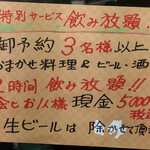 特別サービス 飲み放題!
御予約 3名様以上
おまかせ料理&ビール・酒
2時間 飲み放題!!
お1人様 現金 5000
税込
生ビールは 除かせて頂き